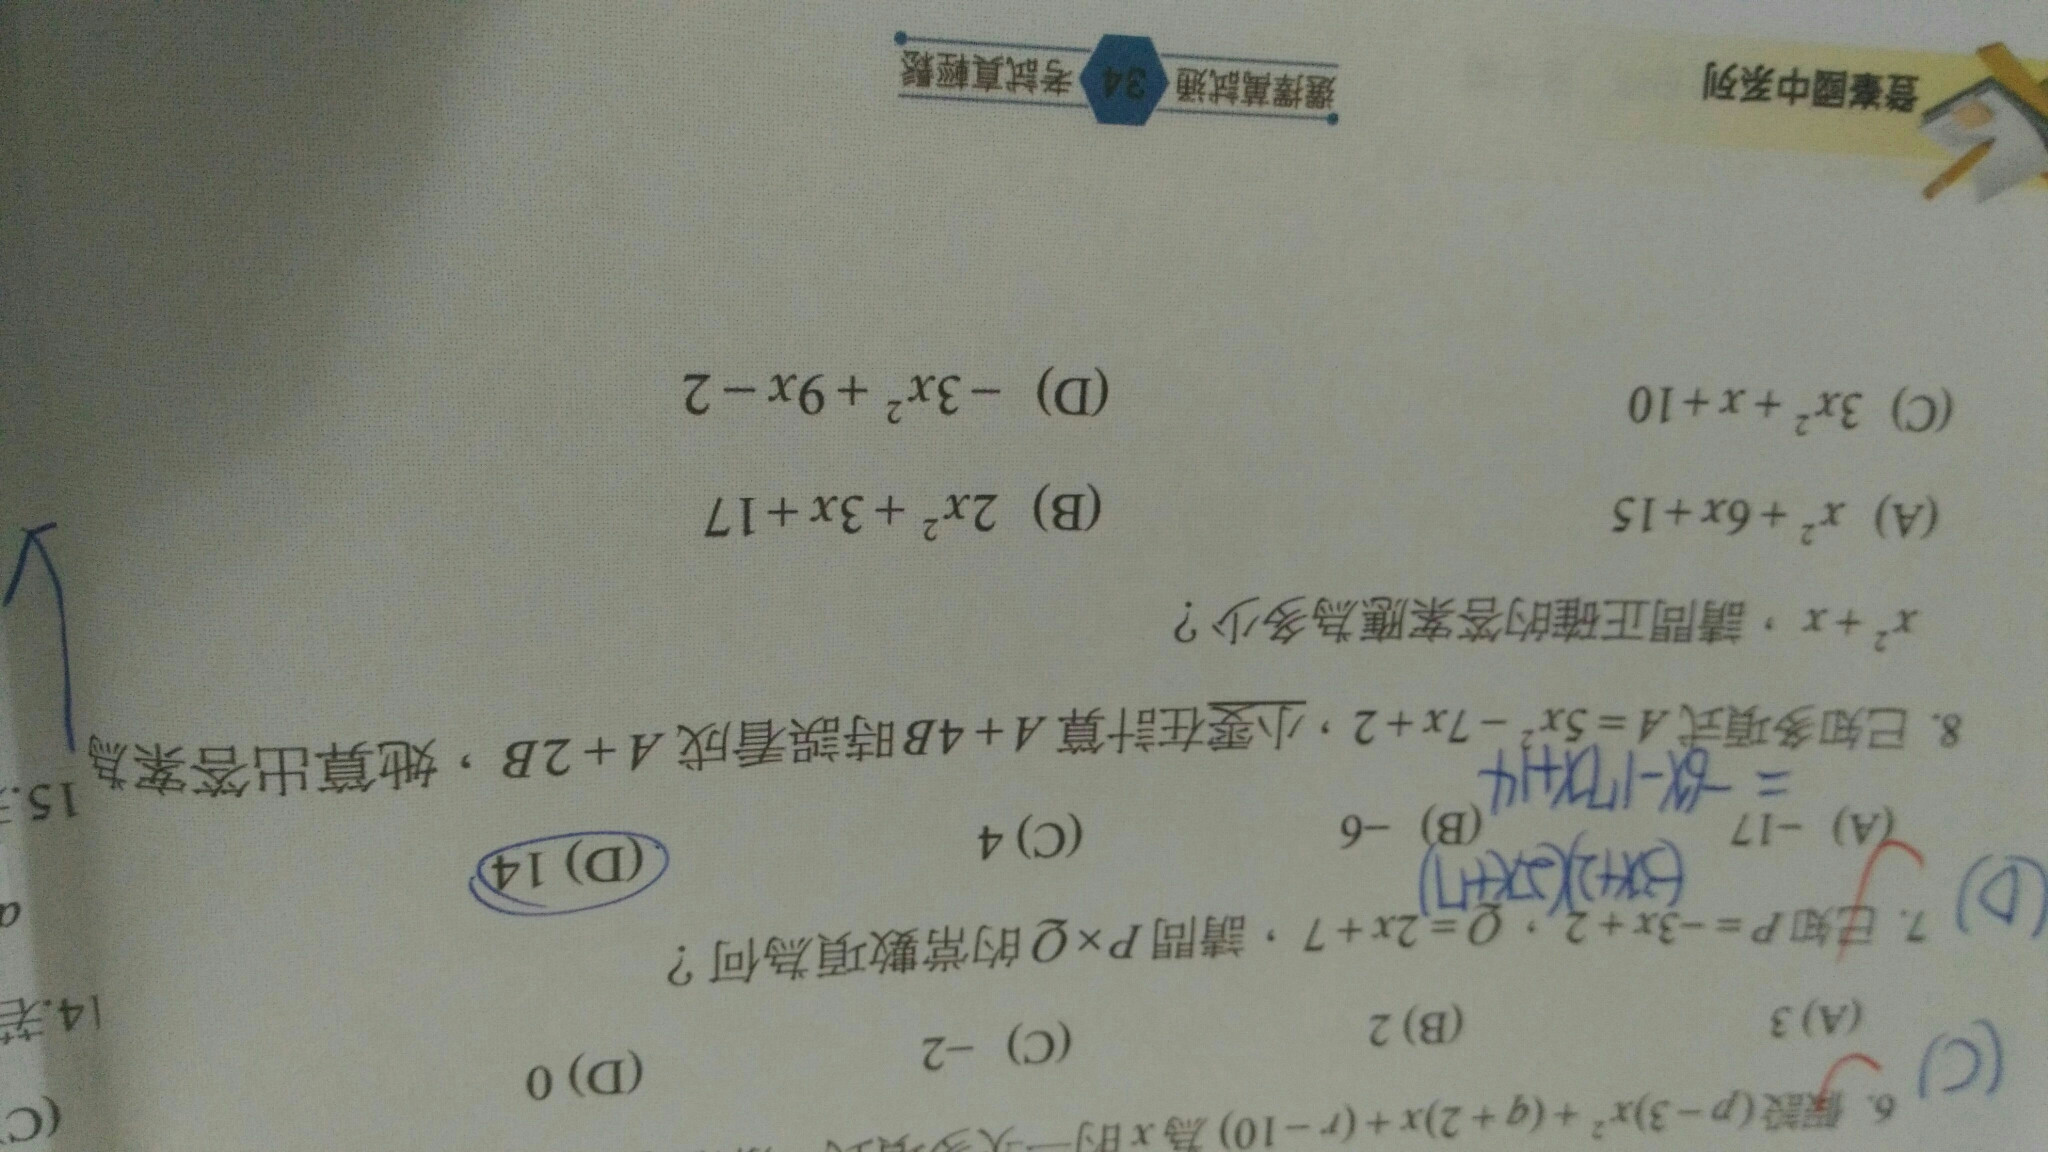 (C) 6. 假設 (p−3)x² + (q+2)x + (r−10) 為 x 的一次多項式
(A) 3 (B) 2 (C) −2 (D) 0
(D) 7. 已知 P = −3x+2,Q = 2x+7,請問 P×Q 的常數項為何?
(−3x+2)(2x+7)
(A) −17 (B) −6 (C) 4 (D) 14
8. 已知多項式 A = 5x² − 7x + 2,小雯在計算 A + 4B 時誤看成 A + 2B,她算出答案為
x² + x,請問正確的答案應為多少?
(A) x² + 6x + 15 (B) 2x² + 3x + 17
(C) 3x² + x + 10 (D) −3x² + 9x − 2
(C)
14. 若
a
15.
登峯國中系列
選擇萬試通 34 考試真輕鬆